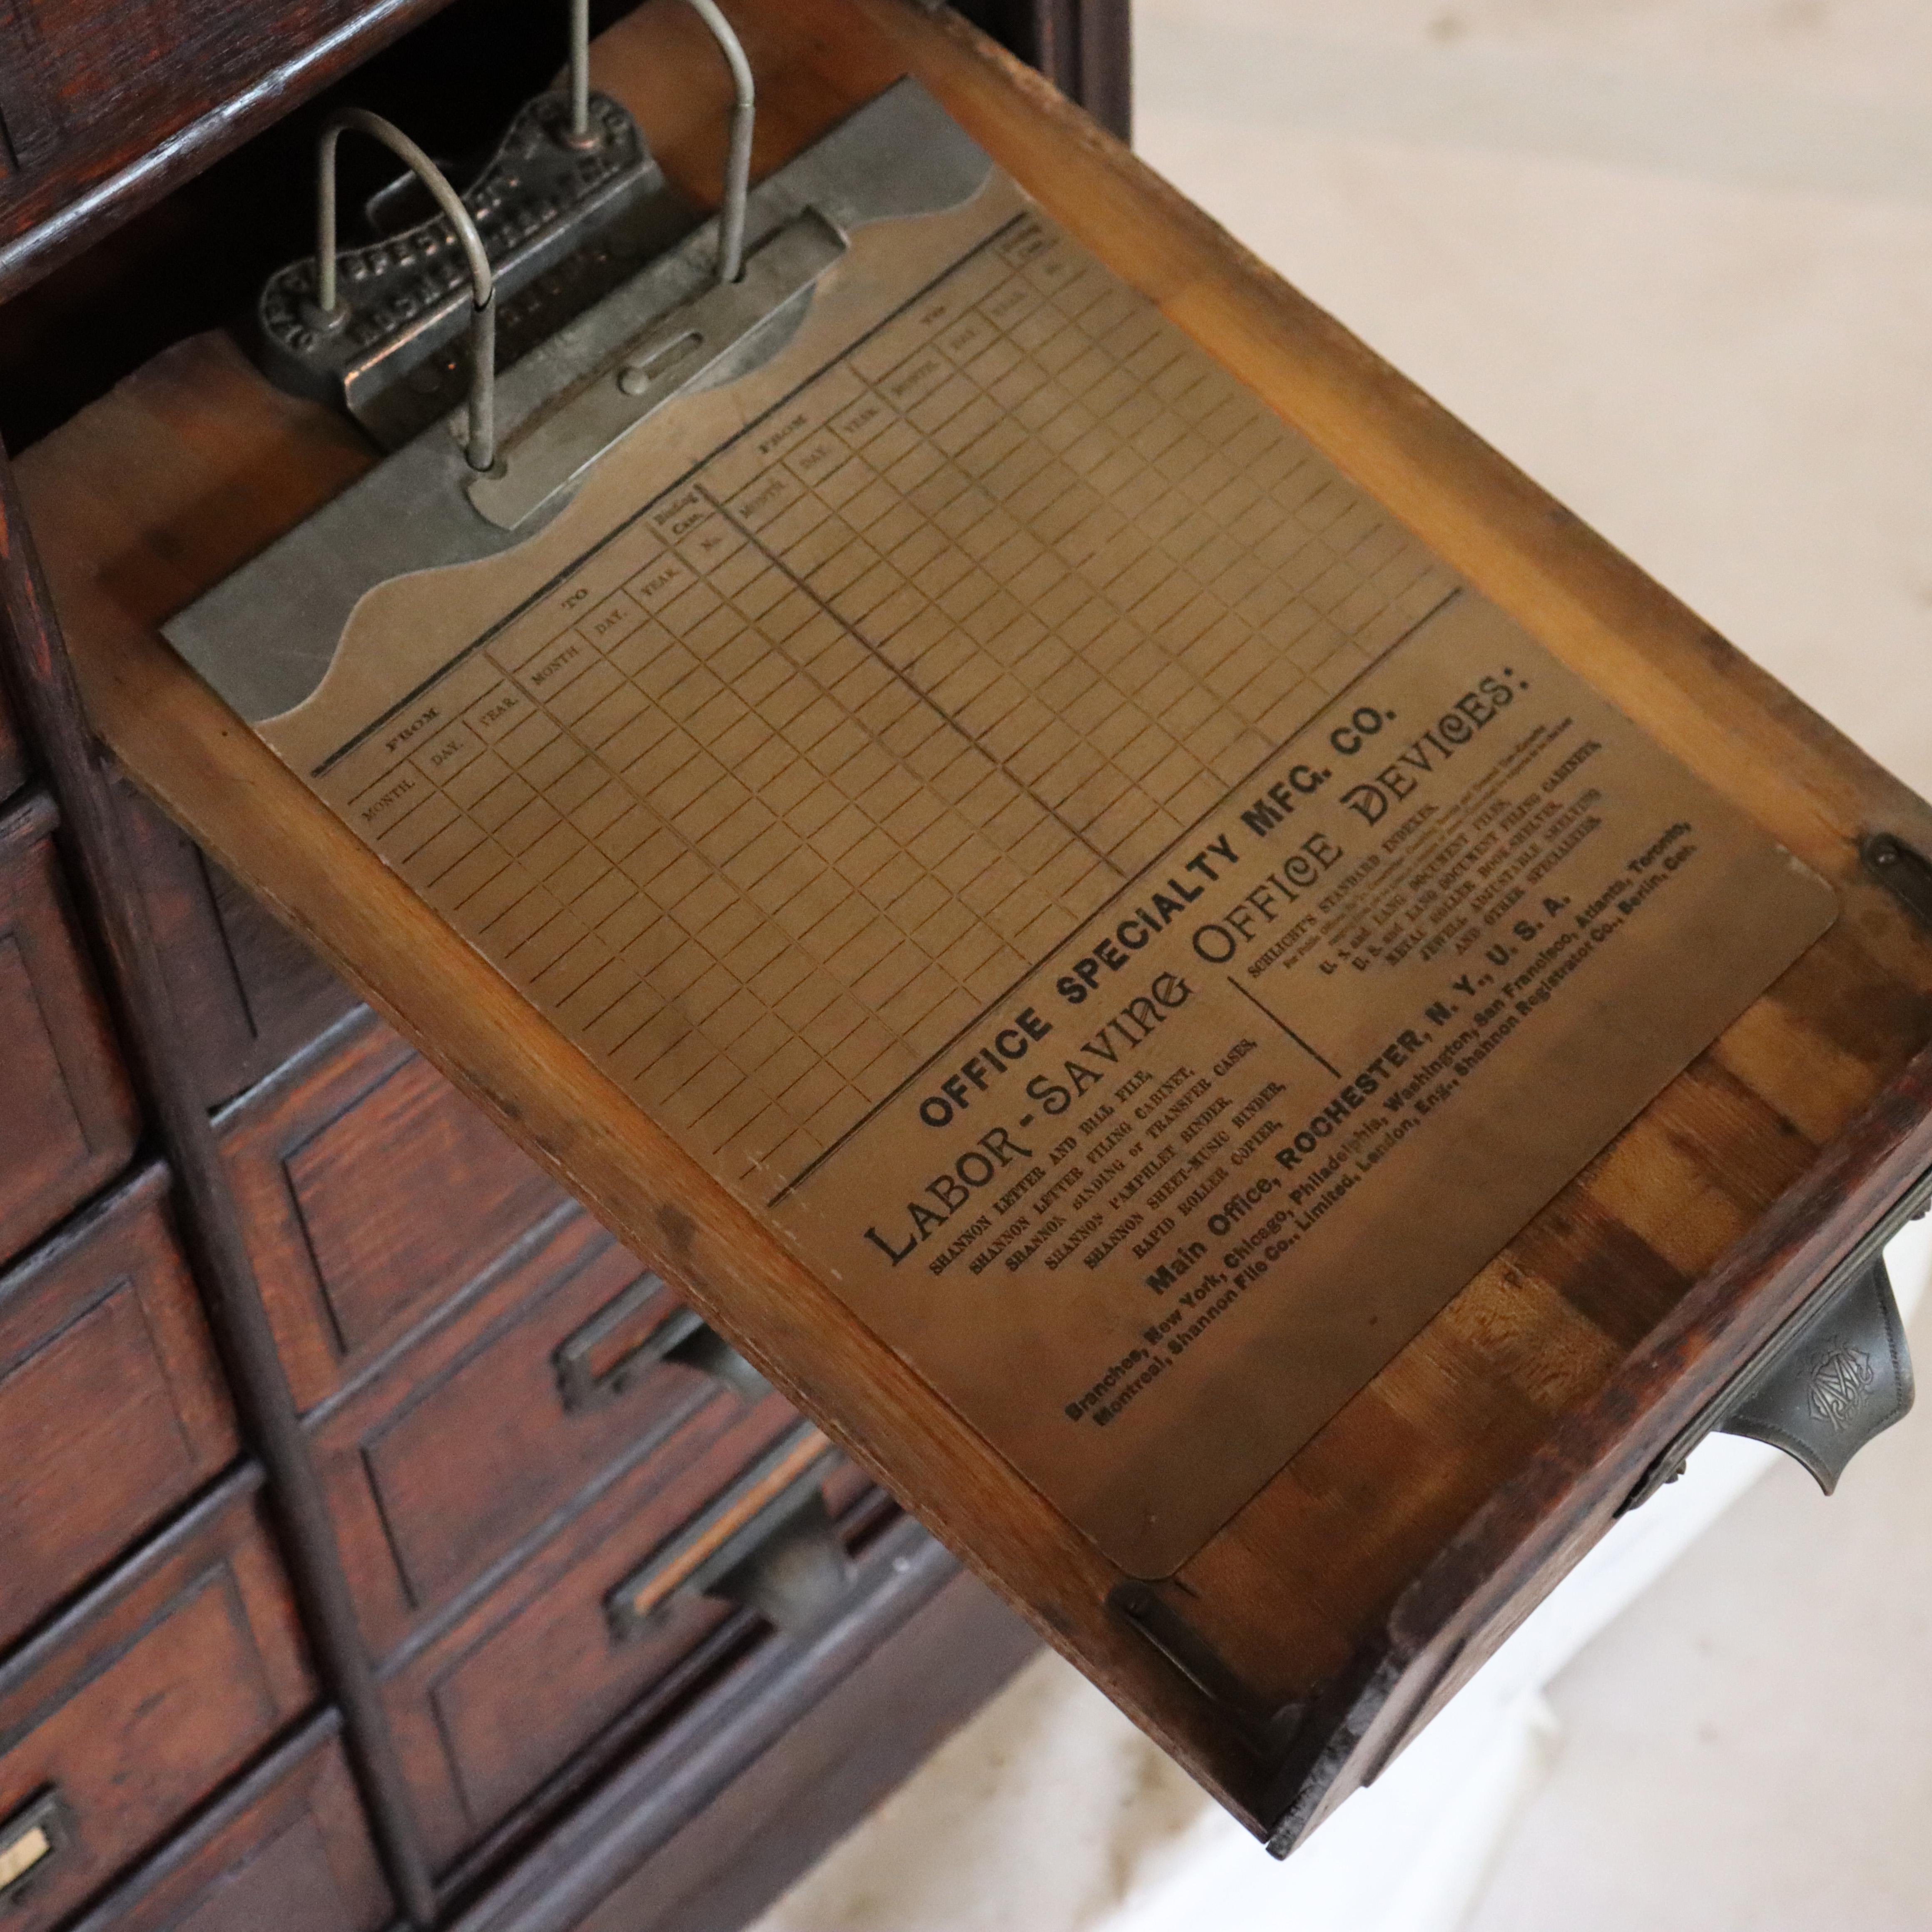 OFFICE SPECIALTY
ROCHESTER
FROM TO Binding Case. FROM TO
MONTH. DAY. YEAR. MONTH. DAY. YEAR. No. MONTH. DAY. YEAR. MONTH. DAY. YEAR. No.
OFFICE SPECIALTY MFG. CO.
LABOR-SAVING OFFICE DEVICES:
SHANNON LETTER AND BILL FILE,
SHANNON LETTER FILING CABINET,
SHANNON BINDING or TRANSFER CASES,
SHANNON PAMPHLET BINDER,
SHANNON SHEET-MUSIC BINDER,
RAPID ROLLER COPIER,
SCHLICHT'S STANDARD INDEXES,
U. S. and LANG DOCUMENT FILES,
U. S. and LANG DOCUMENT FILING CABINETS,
METAL ROLLER BOOK-SHELVES,
JEWELL ADJUSTABLE SHELVING
AND OTHER SPECIALTIES.
Main Office, ROCHESTER, N. Y., U. S. A.
Branches, New York, Chicago, Philadelphia, Washington, San Francisco, Atlanta, Toronto,
Montreal, Shannon File Co., Limited, London, Eng., Shannon Registrator Co., Berlin, Ger.